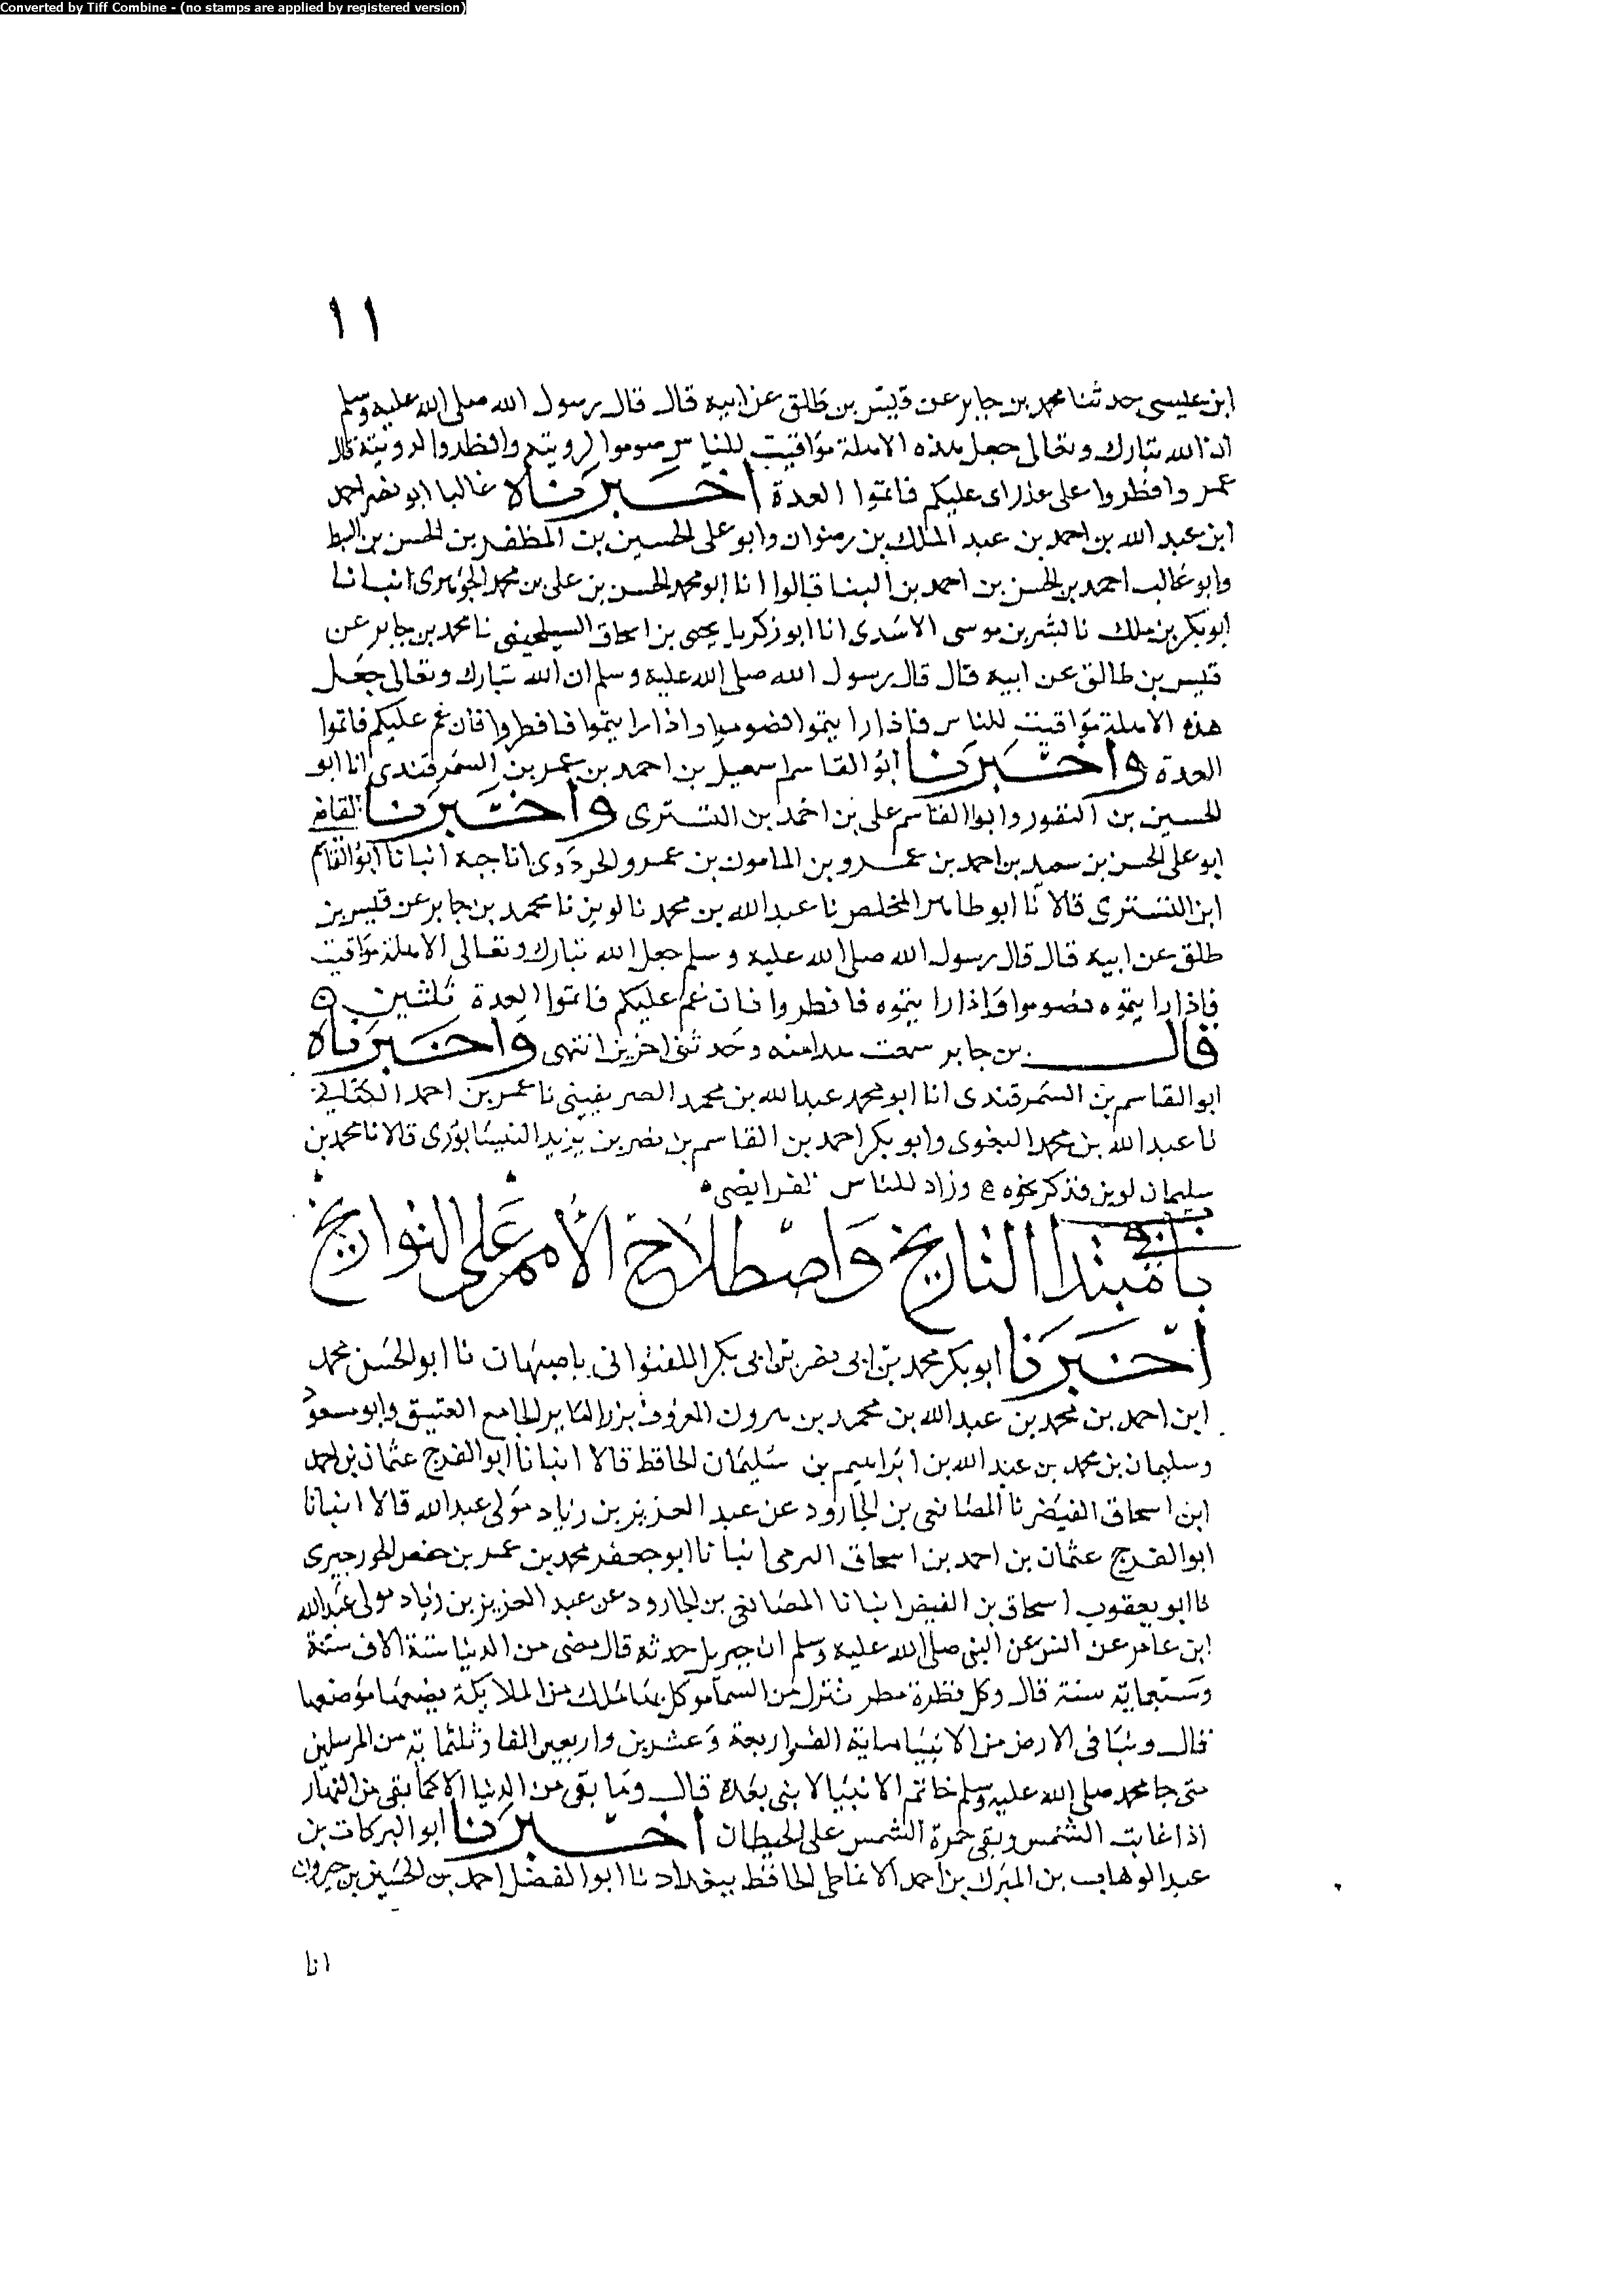 Converted by Tiff Combine - (no stamps are applied by registered version)
١١
ابن عيسى حدثنا محمد بن جابر عن قيس بن طلق عن ابيه قال قال رسول الله صلى الله عليه وسلم
ان الله تبارك وتعالى جعل هذه الاهلة مواقيت للناس صوموا لرويته وافطروا لرويته قال
عمر وافطروا على عليكم فاتموا العدة اخبرناه غالبا ابو نصر احمد
ابن عبد الله بن احمد بن عبد الملك بن رضوان وابو على الحسين بن المظفر بن الحسن بن السبط
وابو غالب احمد بن الحسن بن احمد بن البنا قالوا انا ابو محمد الحسن بن على بن محمد الجوهرى انبانا
ابو بكر بن ملك نا بشر بن موسى الاسدى انا ابو زكريا يحيى بن اسحاق السيلحينى نا محمد بن جابر عن
قيس بن طالق عن ابيه قال قال رسول الله صلى الله عليه وسلم ان الله تبارك وتعالى جعل
هذه الاهلة مواقيت للناس فاذا رايتموا فصوموا واذا رايتموا فافطروا فان غم عليكم فاتموا
العدة واخبرنا ابو القاسم اسمعيل بن احمد بن عمر بن السمرقندى انا ابو
الحسين بن النقور وابو القاسم على بن احمد بن التسترى واخبرنا القاضى
ابو على الحسن بن سعيد بن احمد بن عمرو بن المامون بن عمرو انبانا ابو القاسم
ابن التسترى قالا نا ابو طاهر المخلص نا عبد الله بن محمد نا لوين نا محمد بن جابر عن قيس بن
طلق عن ابيه قال قال رسول الله صلى الله عليه وسلم جعل الله تبارك وتعالى الاهلة مواقيت
فاذا رايتموه فصوموا واذا رايتموه فافطروا فان غم عليكم فاتموا العدة ثلثين
قال بن جابر سمعت هذا منه وحدثنى اخرين انتهى واخبرناه
ابو القاسم بن السمرقندى انا ابو محمد عبد الله بن محمد الصريفينى نا عمر بن احمد الكتانى
نا عبد الله بن محمد البغوى وابو بكر احمد بن القاسم بن نصر بن يزيد النيسابورى قالا نا محمد بن
سليمان لوين فذكر نحوه وزاد للناس الفرايضى
باب فى مبتدا التاريخ واصطلاح الأمم على التواريخ
اخبرنا ابو بكر محمد بن ابى نصر بن ابى بكر اللفتوانى باصبهان نا ابو الحسن محمد
ابن احمد بن محمد بن عبد الله بن محمد بن هرون المعروف الجامع العتيق وابو مسعود
وسليمان بن محمد بن عبد الله بن ابراهيم بن سليمان الحافظ قالا انبانا ابو الفرج عثمان بن احمد
ابن اسحاق الفيض نا المضا نحى بن الجارود عن عبد العزيز بن زياد مولى عبد الله قالا انبانا
ابو الفرج عثمان بن احمد بن اسحاق البرجى انبانا ابو جعفر محمد بن عمر بن حفص الجورجيرى
نا ابو يعقوب اسحاق بن الفيض انبانا المضا نحى بن الجارود عن عبد العزيز بن زياد مولى عبد الله
ابن عامر عن انس عن النبى صلى الله عليه وسلم ان جبريل حدثه قال مضى من الدنيا ستة الاف سنة
وسبعماية سنة قال وكل قطرة مطر تنزل من السما موكل بها ملك من الملايكة يضعها موضعها
قال ونبا فى الارض من الانبيا ماية الف اربعة وعشرين واربعين الفا وثلثماية من المرسلين
حتى جا محمد صلى الله عليه وسلم خاتم الانبيا لا نبى بعده قال وما بقى من الدنيا الا كما بقى من النهار
اذا غابت الشمس وبقى حمرة الشمس على الحيطان اخبرنا ابو البركات بن
عبد الوهاب بن المبرك بن احمد الانماطى الحافظ ببغداد نا ابو الفضل احمد بن الحسين بن خيرون
انا